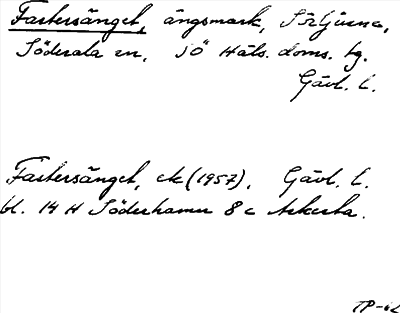 Fastersänget, ängsmark, Sörljusne,
Söderala sn, SÖ Häls. doms. tg.
Gävl. l.
Fastersänget, ek (1957), Gävl. l.
bl. 14 H Söderhamn 8 c Askesta.
TP-62